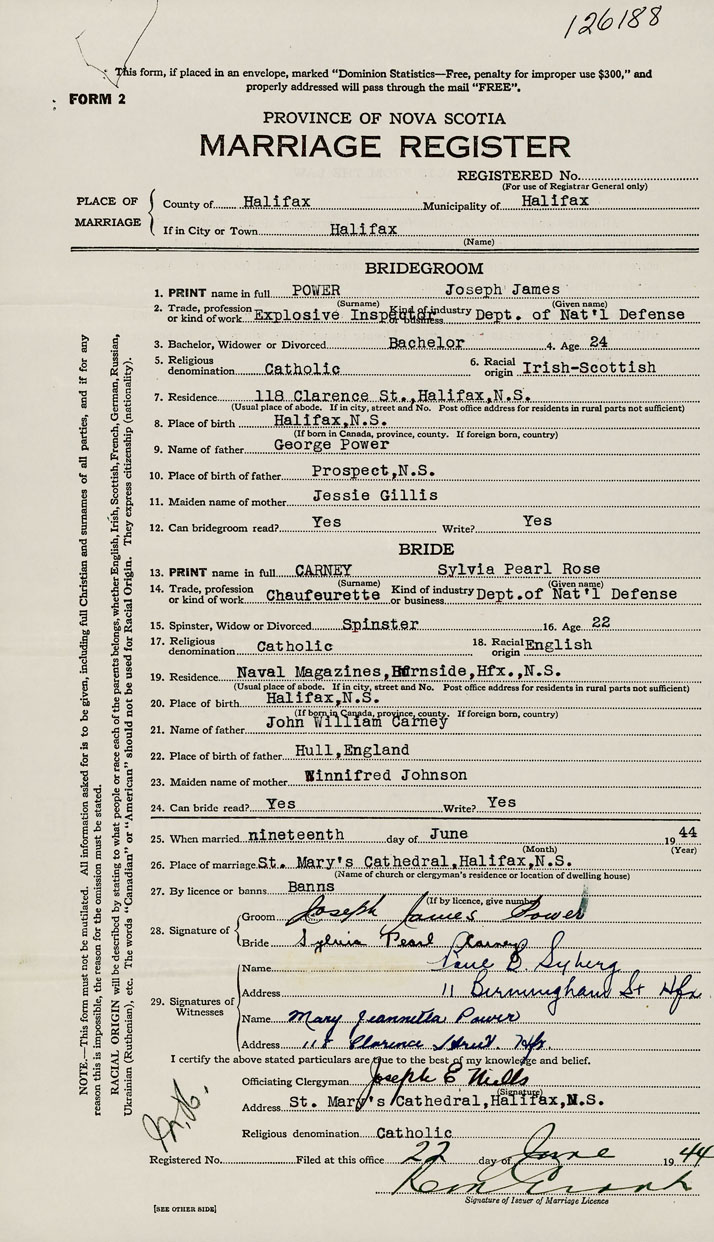 126188
This form, if placed in an envelope, marked "Dominion Statistics—Free, penalty for improper use $300," and
properly addressed will pass through the mail "FREE".
FORM 2
PROVINCE OF NOVA SCOTIA
MARRIAGE REGISTER
REGISTERED No.
(For use of Registrar General only)
PLACE OF MARRIAGE
County of Halifax Municipality of Halifax
If in City or Town Halifax
(Name)
BRIDEGROOM
1. PRINT name in full POWER Joseph James
(Surname) (Given name)
2. Trade, profession or kind of work Explosive Inspector Kind of industry or business Dept. of Nat'l Defense
3. Bachelor, Widower or Divorced Bachelor 4. Age 24
5. Religious denomination Catholic 6. Racial origin Irish-Scottish
7. Residence 118 Clarence St., Halifax, N.S.
(Usual place of abode. If in city, street and No. Post office address for residents in rural parts not sufficient)
8. Place of birth Halifax, N.S.
(If born in Canada, province, county. If foreign born, country)
9. Name of father George Power
10. Place of birth of father Prospect, N.S.
11. Maiden name of mother Jessie Gillis
12. Can bridegroom read? Yes Write? Yes
BRIDE
13. PRINT name in full CARNEY Sylvia Pearl Rose
(Surname) (Given name)
14. Trade, profession or kind of work Chaufeurette Kind of industry or business Dept.of Nat'l Defense
15. Spinster, Widow or Divorced Spinster 16. Age 22
17. Religious denomination Catholic 18. Racial origin English
19. Residence Naval Magazines, Burnside, Hfx., N.S.
(Usual place of abode. If in city, street and No. Post office address for residents in rural parts not sufficient)
20. Place of birth Halifax, N.S.
(If born in Canada, province, county. If foreign born, country)
21. Name of father John William Carney
22. Place of birth of father Hull, England
23. Maiden name of mother Winnifred Johnson
24. Can bride read? Yes Write? Yes
25. When married nineteenth day of June 1944
(Month) (Year)
26. Place of marriage St. Mary's Cathedral, Halifax, N.S.
(Name of church or clergyman's residence or location of dwelling house)
27. By licence or banns Banns
(If by licence, give number)
28. Signature of
Groom Joseph James Power
Bride Sylvia Pearl Carney
29. Signatures of Witnesses
Name B. Syberg
Address 11 Birmingham St Hfx
Name Mary Jeannetta Power
Address 118 Clarence Street. Hfx.
I certify the above stated particulars are true to the best of my knowledge and belief.
Officiating Clergyman Joseph E Mills
(Signature)
Address St. Mary's Cathedral, Halifax, N.S.
Religious denomination Catholic
Registered No. Filed at this office 22 day of June 1944
Signature of Issuer of Marriage Licence
[SEE OTHER SIDE]
NOTE.—This form must not be mutilated. All information asked for is to be given, including full Christian and surnames of all parties, and if for any
reason this is impossible, the reason for the omission must be stated.
RACIAL ORIGIN will be described by stating to what people or race each of the parents belongs, whether English, Irish, Scottish, French, German, Russian,
Ukrainian (Ruthenian), etc. The words "Canadian" or "American" should not be used for Racial Origin. They express citizenship (nationality).